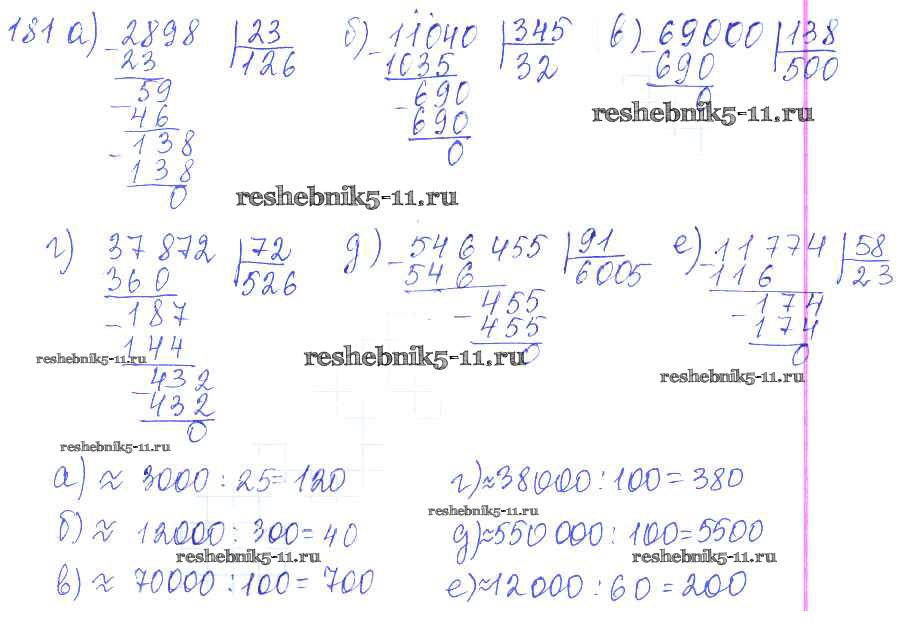 181 а) 2898 | 23 б) 11040 | 345 в) 69000 | 138
- 23 126 - 1035 32 - 690 500
59 690 0
- 46 - 690 reshebnik5-11.ru
138 0
- 138
0 reshebnik5-11.ru
г) 37872 | 72 д) 546455 | 91 е) 11774 | 58
360 526 - 546 6005 - 116 23
- 187 455 174
144 - 455 - 174
reshebnik5-11.ru reshebnik5-11.ru 0 0
432 reshebnik5-11.ru
- 432
0
reshebnik5-11.ru
а) ≈ 3000 : 25 = 120 г) ≈ 38000 : 100 = 380
reshebnik5-11.ru
б) ≈ 12000 : 300 = 40 д) ≈ 550 000 : 100 = 5500
reshebnik5-11.ru reshebnik5-11.ru
в) ≈ 70000 : 100 = 700 е) ≈ 12000 : 60 = 200